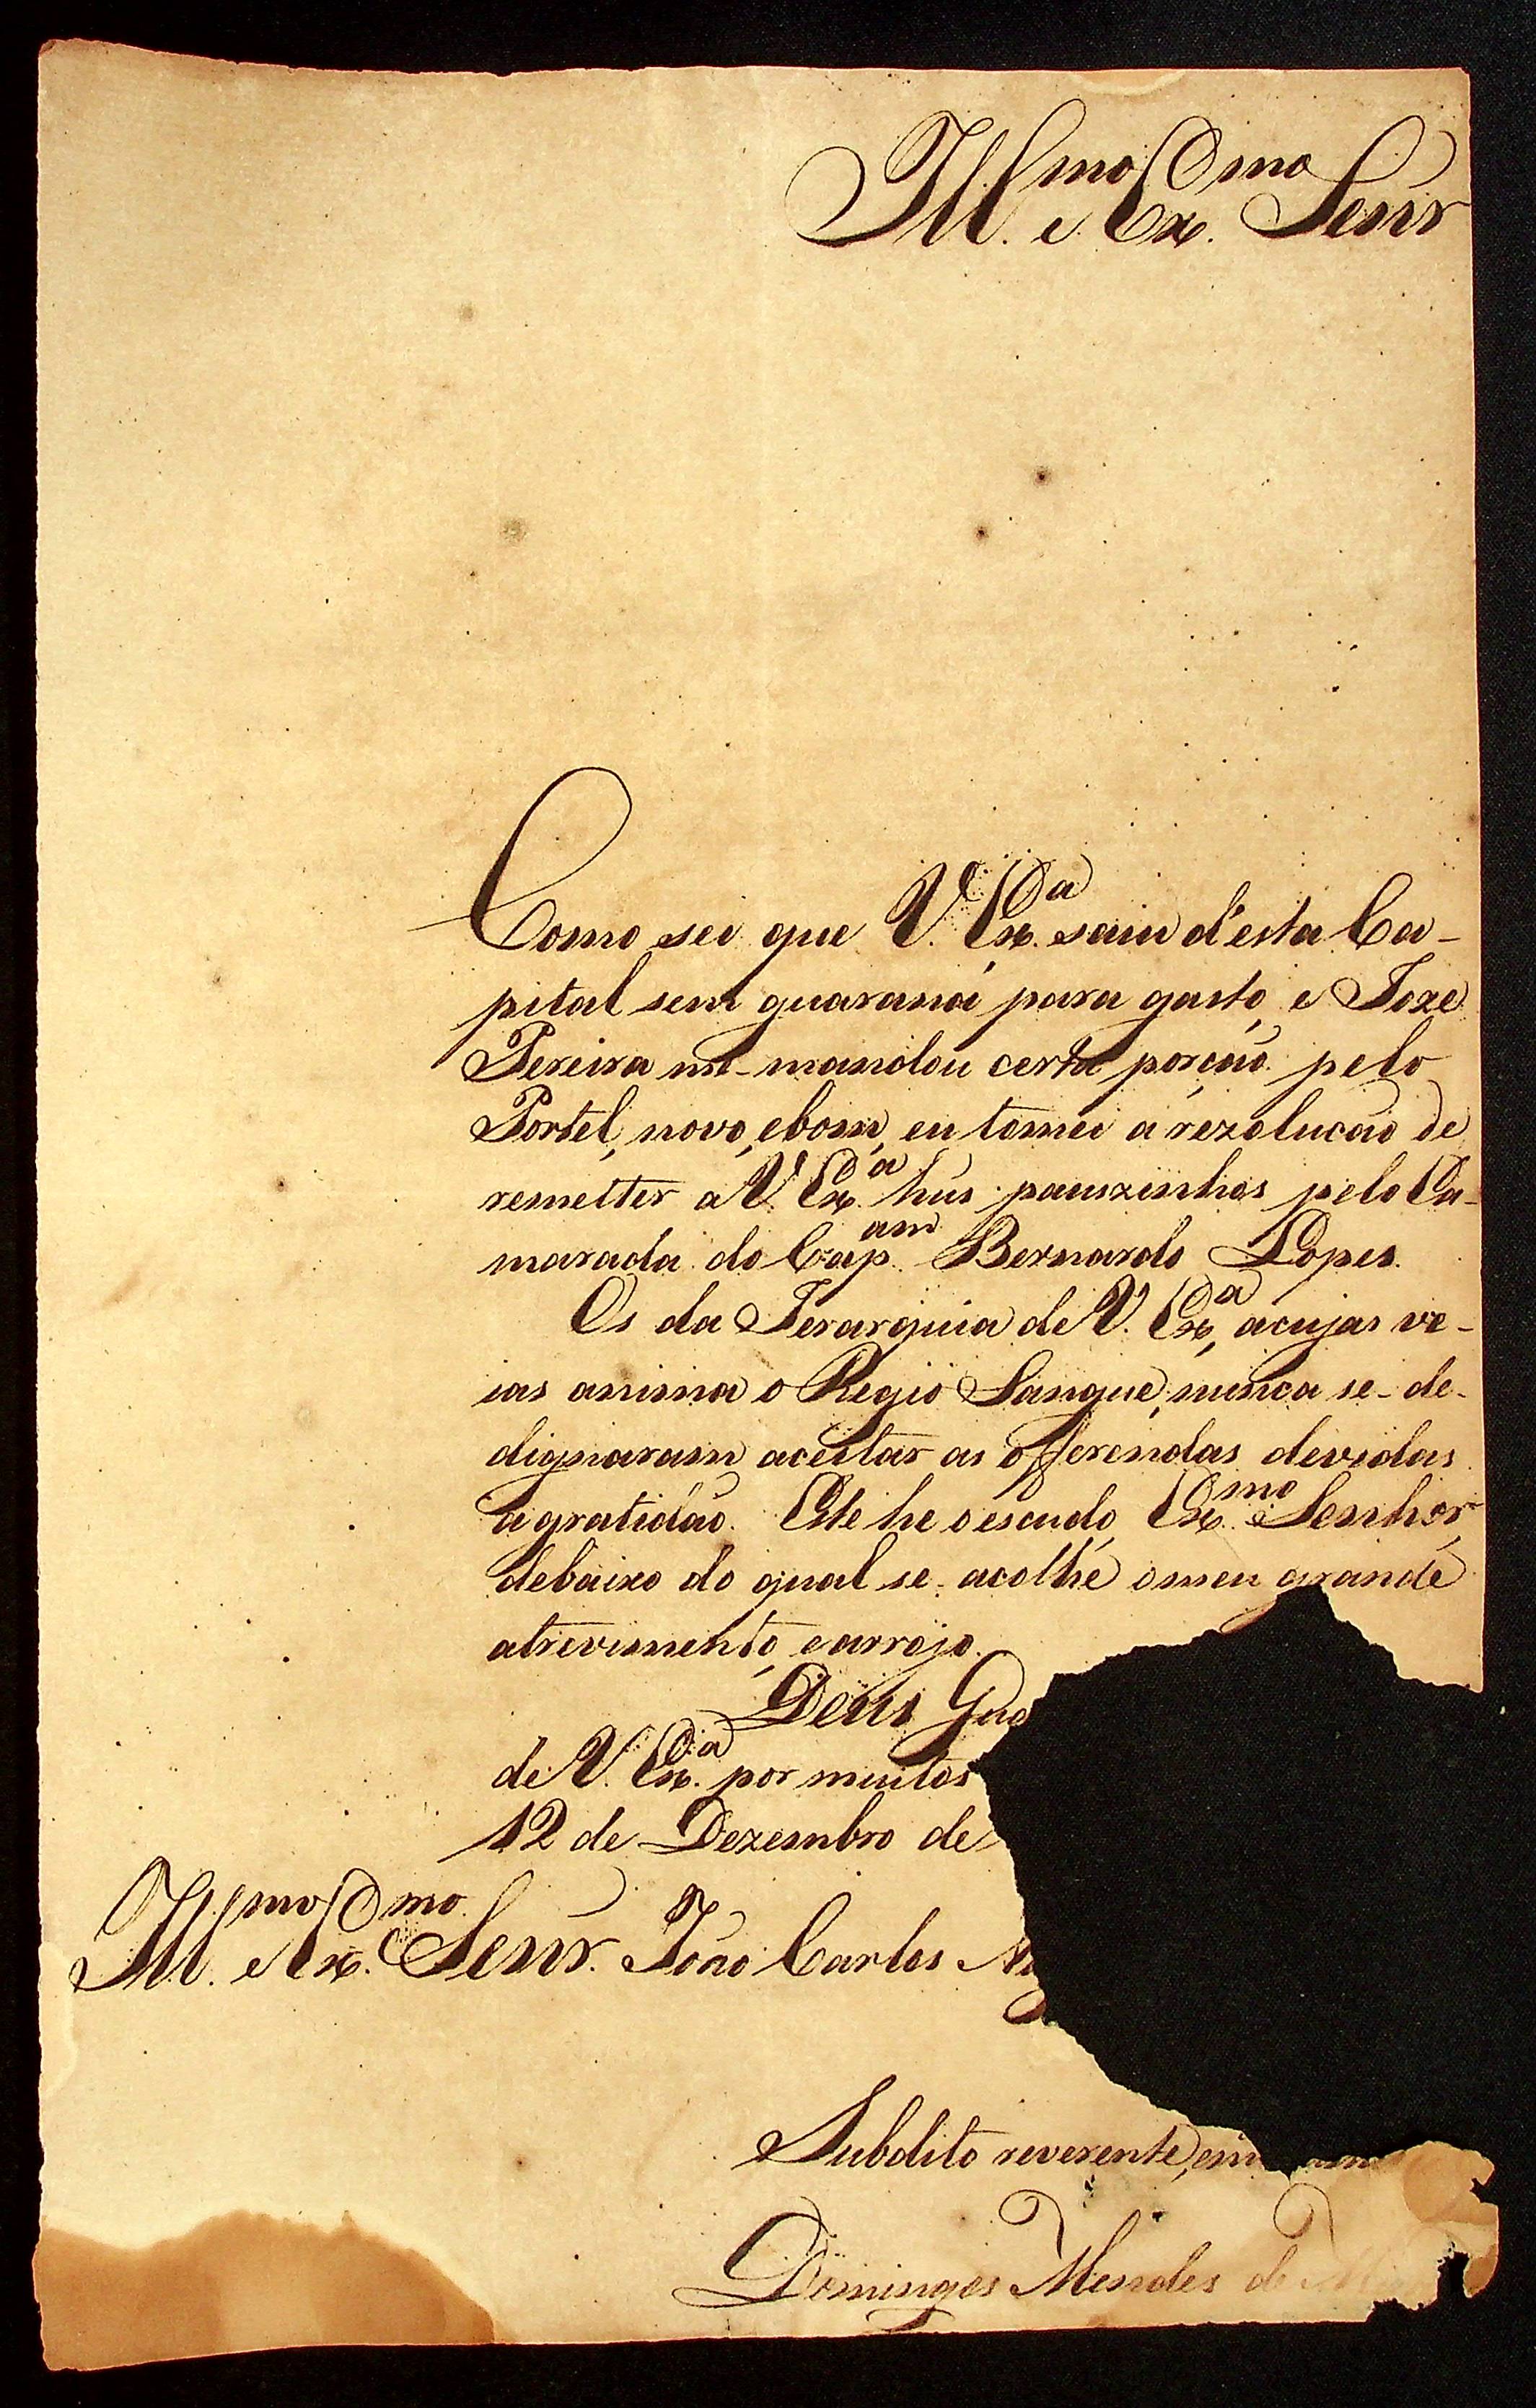 Ill.mo e Ex.mo Senr
Como sei que V. Ex.a saiu d'esta Ca-
pital sem guaraná para gasto, e Joze
Pereira me-mandou certa porção pelo
Portel, novo, ebom, eu tomei a rezolução de
remetter a V. Ex.a hús pauszinhos pelo Ca-
marada do Cap.am Bernardo Lopes.
Os da Jerarquia de V. Ex.a, acujas ve-
ias anima o Regio Sangue, nunca se-de-
dignaram aceitar as offerendas devidas
agratidão. Este he oescudo, Ex.mo Senhor,
debaixo do qual se-acolhe omeu grande
atrevimento, earrojo.
Deus Gua
de V. Ex.a por muitos
12 de Dezembro de
Ill.mo e Ex.mo Senr. João Carlos
Subdito reverente,
Domingos Mendes de